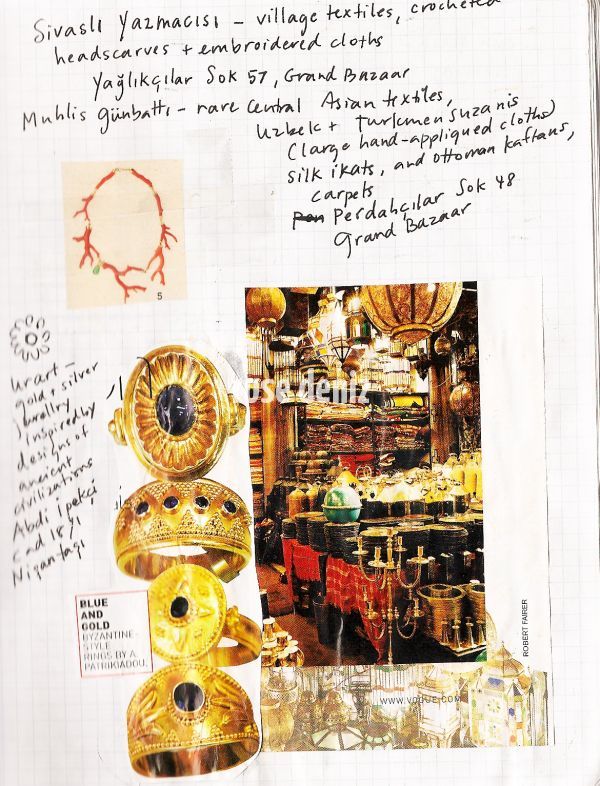 Sivaslı Yazmacısı – village textiles, crocheted
headscarves + embroidered cloths
Yağlıkçılar Sok 57, Grand Bazaar
Muhlis günbattı – rare Central Asian textiles,
Uzbek + Turkmen Suzanis
(large hand-appliqued cloths)
silk ikats, and ottoman kaftans,
carpets
Perdahçılar Sok 48
Grand Bazaar
5
urart –
gold + silver
jewellry
inspired by
designs of
ancient
civilizations
Abdi İpekçi
Cad 18/1
Nişantaşı
BLUE
AND
GOLD
BYZANTINE-
STYLE
RINGS BY A.
PATRIKIADOU.
ROBERT FAIRER
WWW.VOGUE.COM